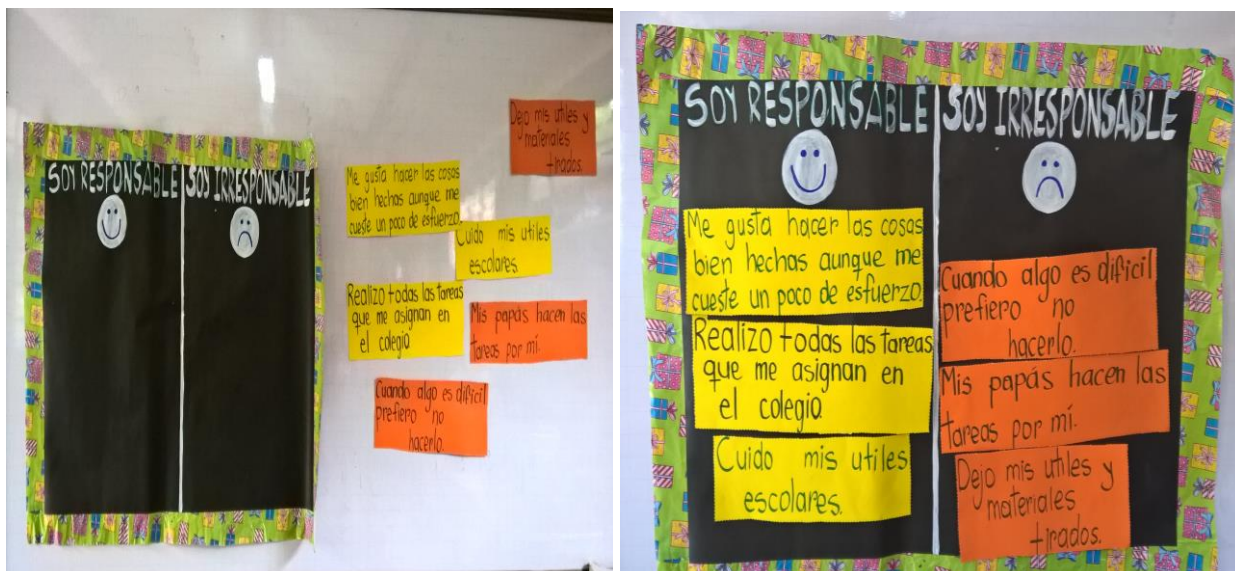 SOY RESPONSABLE
SOY IRRESPONSABLE
Dejo mis utiles y
materiales
tirados.
Me gusta hacer las cosas
bien hechas aunque me
cueste un poco de esfuerzo.
Cuido mis utiles
escolares.
Realizo todas las tareas
que me asignan en
el colegio
Mis papás hacen las
tareas por mí.
Cuando algo es dificil
prefiero no
hacerlo.
SOY RESPONSABLE
SOY IRRESPONSABLE
Me gusta hacer las cosas
bien hechas aunque me
cueste un poco de esfuerzo.
Realizo todas las tareas
que me asignan en
el colegio
Cuido mis utiles
escolares.
Cuando algo es dificil
prefiero no
hacerlo.
Mis papás hacen las
tareas por mí.
Dejo mis utiles y
materiales
tirados.